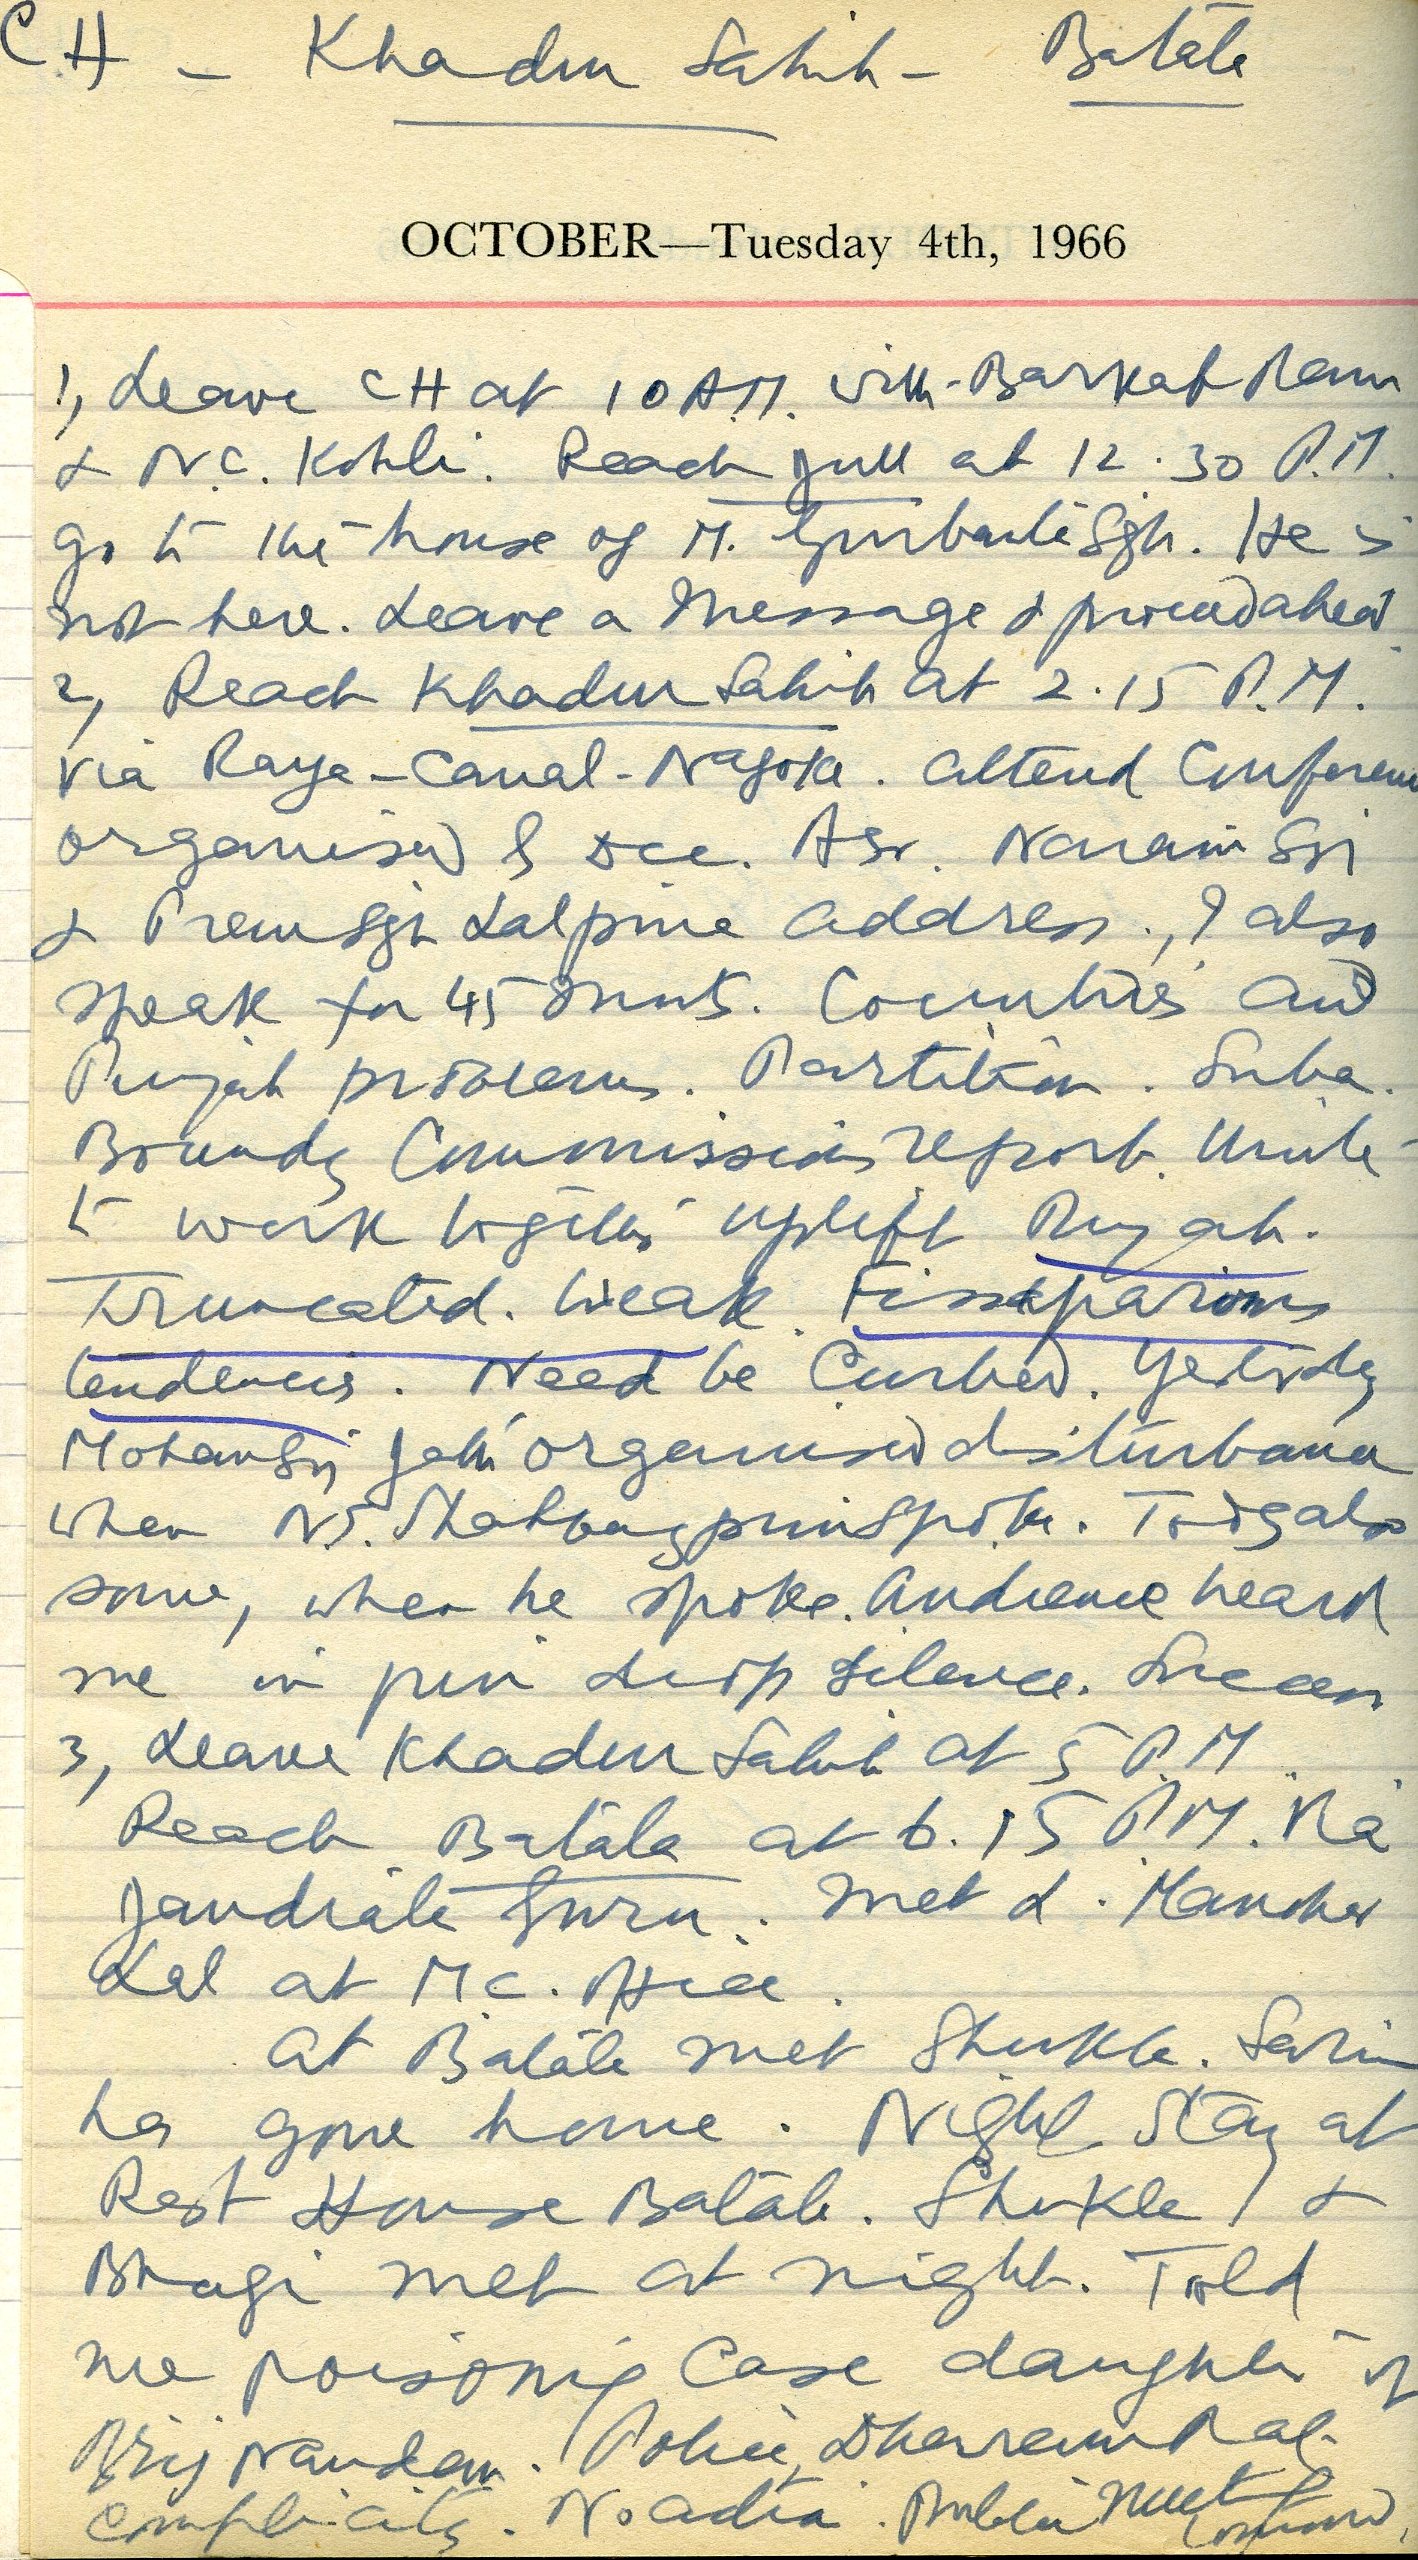 CH - Khadur Sahib - Batala
OCTOBER—Tuesday 4th, 1966
1, Leave CH at 10 A.M. with Barkat Ram
& N.C. Kohli. Reach Jull at 12.30 P.M.
go to the house of M. Gurbanta Sgh. He is
not here. Leave a message & proceed ahead
2, Reach Khadur Sahib at 2.15 P.M.
via Raya - Canal - Nagoke. Attend Conference
organised by DCC. ASR. Narain Sgh
& Prem Sgh Lalpura address., I also
speak for 45 mnts. Countries and
Punjab problems. Partition. Suba.
Boundy Commission report. Unite
to work together uplift Punjab.
Truncated. Weak. Fissiparous
tendencies. Need be Curbed. Yesterday
Mohan Sgh organised disturbance
when N.S. spoke. Today also
some, when he spoke. Audience heard
me in pin drop silence. Success
3, Leave Khadur Sahib at 5 P.M.
Reach Batala at 6.15 P.M. Via
Jandiala Guru. Met L. Manohar
Lal at M.C. Office.
At Batala met Shukla. Sarin
has gone home. Night Stay at
Rest House Batala. Shukla &
Bhagi met at night. Told
me poisoning Case daughter of
Brij Nandan. Police, Dharam Pal
complicity. No action. Public meet